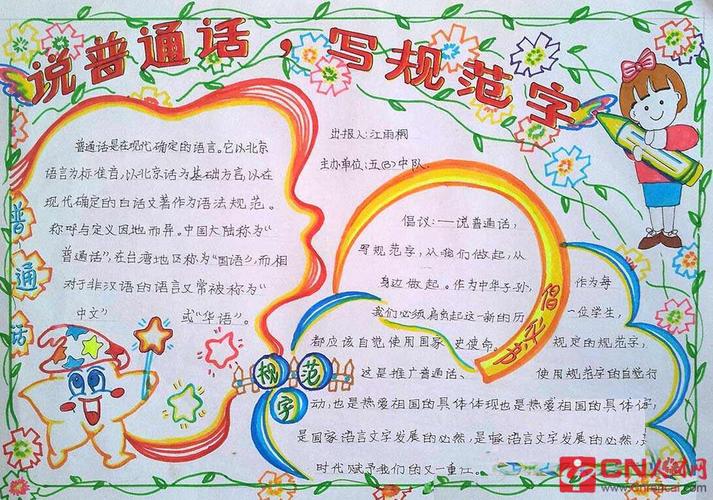 说普通话,写规范字
普通话是在现代确定的语言。它以北京
语言为标准首,以北京话为基础方言,以在
现代确定的白话文著作为语法规范。
称呼与定义因地而异。中国大陆称为“
普通话”,在台湾地区称为“国语”,而相
对于非汉语的语言又常被称为“
中文” 或“华语”。
普通话
规范字
出报人:江雨桐
主办单位:五(3)中队
倡议:——说普通话,
写规范字,从我们做起,从
身边做起。作为中华子孙,
我们必须肩负起这一新的历
史使命。
倡议书
作为每
一位学生,
都应该自觉使用国家 规定的规范字,
这是推广普通话、 使用规范字的自觉行
动,也是热爱祖国的具体体现也是热爱祖国的具体体
是国家语言文字发展的必然,是 语言文字发展的必然,是
时代赋予我们的又一重江。
CN人才网
www.cnrencai.com